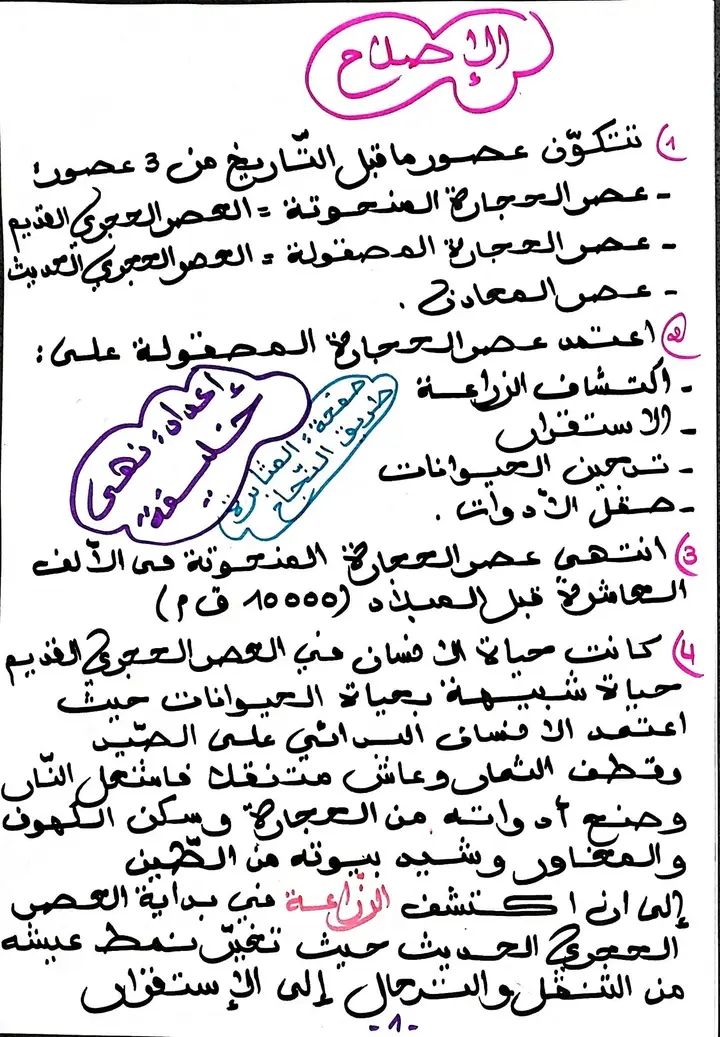 الإصلاح
1) تتكوّن عصور ما قبل التّاريخ من 3 عصور:
- عصر الحجارة المنحوتة = العصر الحجري القديم
- عصر الحجارة المصقولة = العصر الحجري الحديث
- عصر المعادن.
2) اعتمد عصر الحجارة المصقولة على:
- اكتشاف الزراعة
- الاستقرار
- تدجين الحيوانات
- صقل الأدوات.
إعداد: نهى
خليفة
صفحة: المثابرة
طريق النّجاح
3) انتهى عصر الحجارة المنحوتة في الألف
العاشرة قبل الميلاد (10000 ق م)
4) كانت حياة الانسان في العصر الحجري القديم
حياة شبيهة بحياة الحيوانات حيث
اعتمد الانسان البدائي على الصّيد
وقطف الثمار وعاش متنقلا فاستعمل النّار
وصنع أدواته من الحجارة وسكن الكهوف
والمغاور وشيد بيوته من الطّين
إلى ان اكتشف الزّراعة في بداية العصر
الحجري الحديث حيث تغيّر نمط عيشه
من التنقل والترحال إلى الإستقرار
-1-